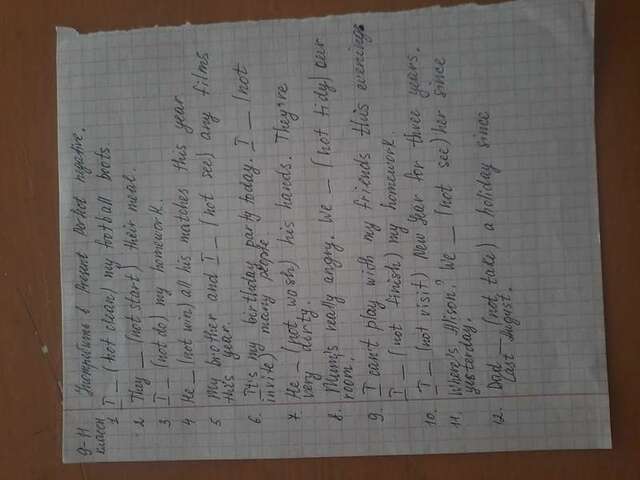 9-11 Употребить в Present Perfect negative.
классы
1 I _ (not clean) my football boots
2 They _ (not start) their meal.
3 I _ (not do) my homework.
4 He _ (not win) all his matches this year
5 My brother and I _ (not see) any films
this year.
6 It's my birthday party today. I _ (not
invite) many people
7. He _ (not wash) his hands. They're
very dirty.
8. Mum's really angry. We _ (not tidy) our
room.
9. I can't play with my friends this evenings
I _ (not finish) my homework.
10. I _ (not visit) New Year for three years.
11. Where's Alison? We _ (not see) her since
yesterday.
12. Dad _ (not take) a holiday since
last August.